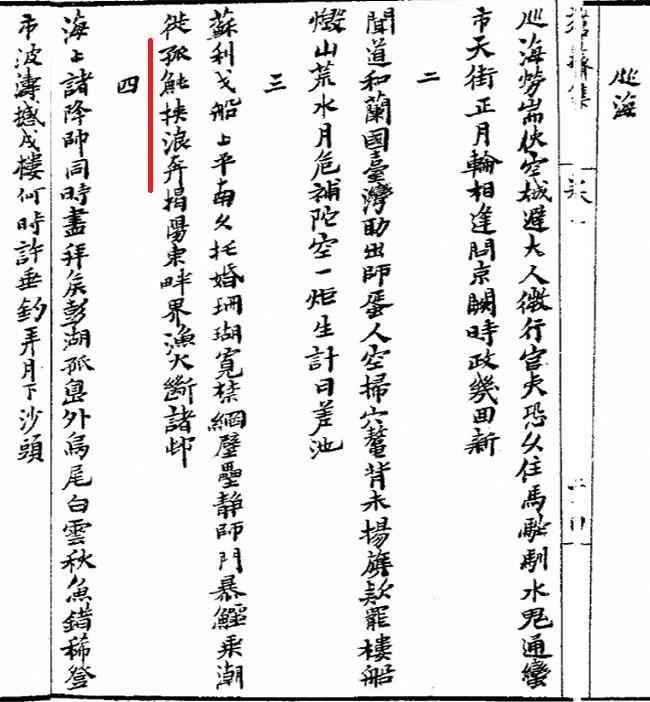 廵海
廵海勞耑使空城避大人微行官吏恐久住馬駝馴水鬼通蠻
市天街正月輪相逢問京闕時政幾回新
二
聞道和蘭國臺灣助出師蛋人空掃穴鰲背未揚旗欵罷樓船
燬山荒水月危補陀空一炬生計日差池
三
蘇利戈船上平南久托婚珊瑚寬禁網壁壘静師門暴鱷乘潮
徙孤魭挾浪奔揭陽東畔界漁火斷諸邨
四
海上諸降帥同時盡拜矦彭湖孤島外鳥尾白雲秋魚錯稀登
市波濤撼戍樓何時許垂釣弄月下沙頭